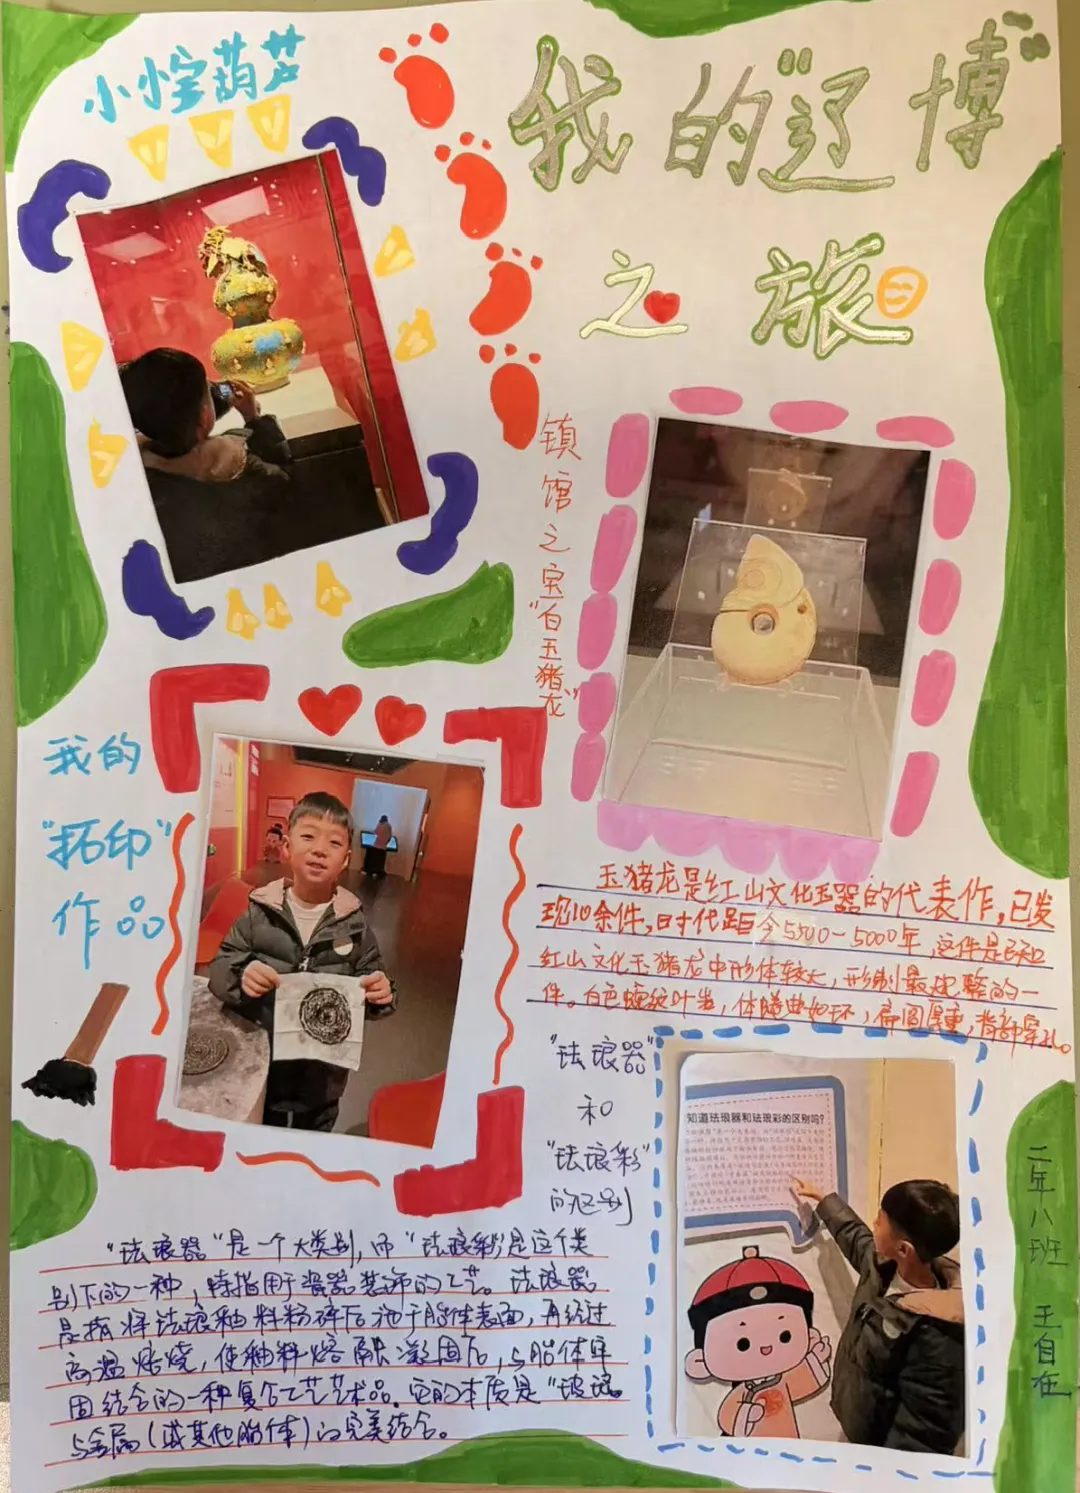 小小宝葫芦
我的“辽博”
之旅
镇馆之宝“白玉猪龙”
我的
“拓印”
作品
玉猪龙是红山文化玉器的代表作,已发
现10余件,时代距今5500-5000年,这件是已知
红山文化玉猪龙中形体较大,形制最规整的一
件。白色蛇纹叶岩,体蜷曲如环,扁圆厚重,背部穿孔。
“珐琅器”
和
“珐琅彩”
的区别
知道珐琅器和珐琅彩的区别吗?
“珐琅器”是一个大类别,而“珐琅彩”是这个类
别下的一种,特指用于瓷器装饰的工艺。珐琅器
是指将珐琅釉料粉碎后施于胎体表面,再经过
高温焙烧,使釉料熔融凝固后,与胎体牢
固结合的一种复合工艺艺术品。它的本质是“玻璃
与金属(或其他胎体)的完美结合。
二年八班 王自在